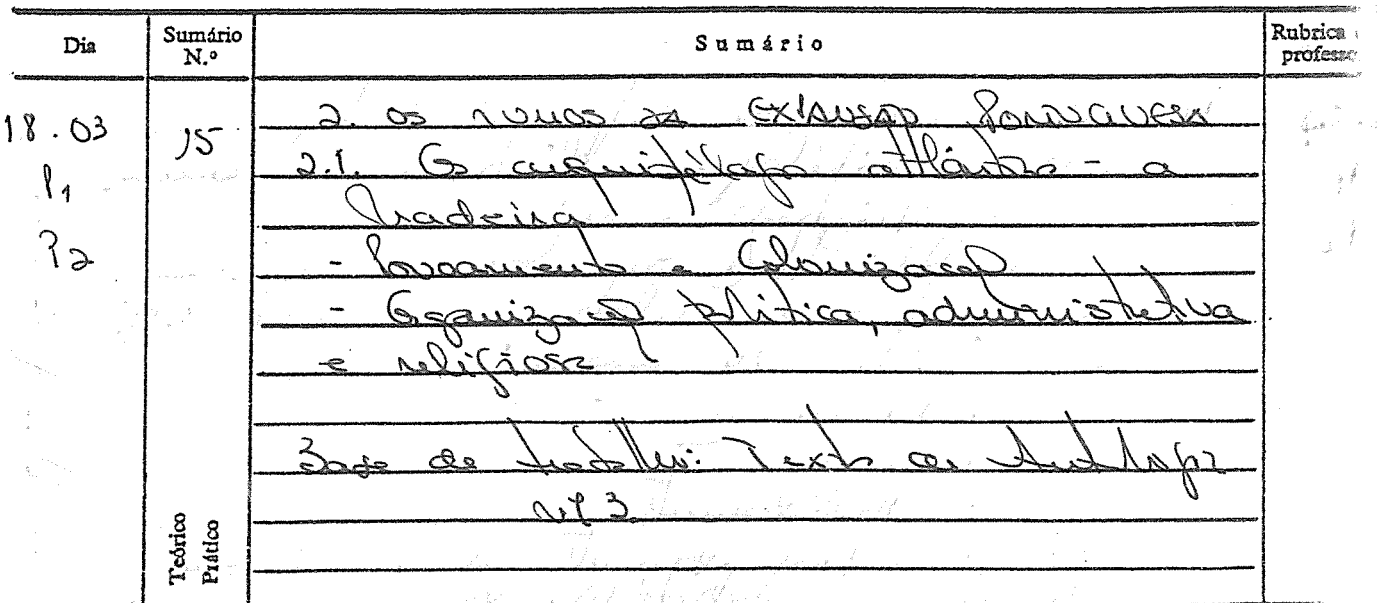 Dia
Sumário N.º
Sumário
Rubrica
professo
18.03
P1
P2
15
2. Os rumos da EXPANSÃO PORTUGUESA
2.1. Os arquipélagos atlânticos - a
Madeira
- Povoamento e Colonização
- Organização política, administrativa
e religiosa
Base de trabalho: Texto da Antologia
nº 3
Teórico
Prático